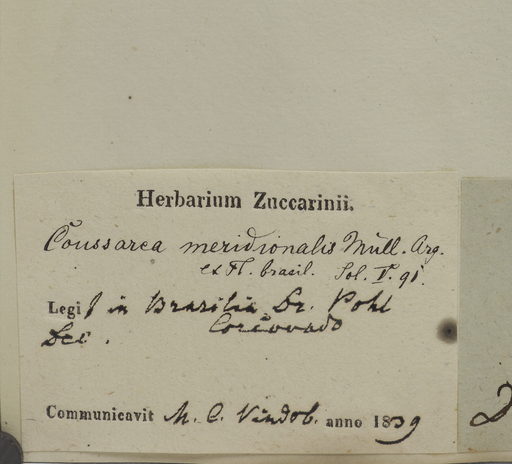 Herbarium Zuccarinii.
Coussarea meridionalis Müll. Arg.
ex Fl. brasil. Fol. V. 91.
Legi in Brasilia Dr. Pohl
Corcovado
Dec.
Communicavit M. C. Vindob. anno 1839